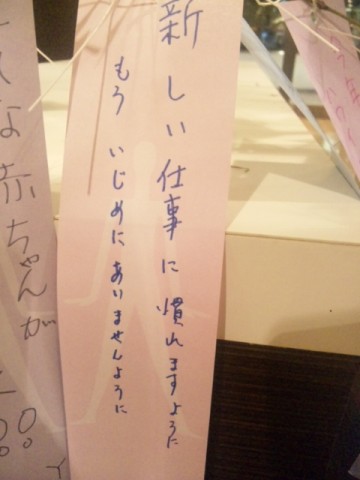 新しい仕事に慣れますように
もういじめにあいませんように
な赤ちゃんが